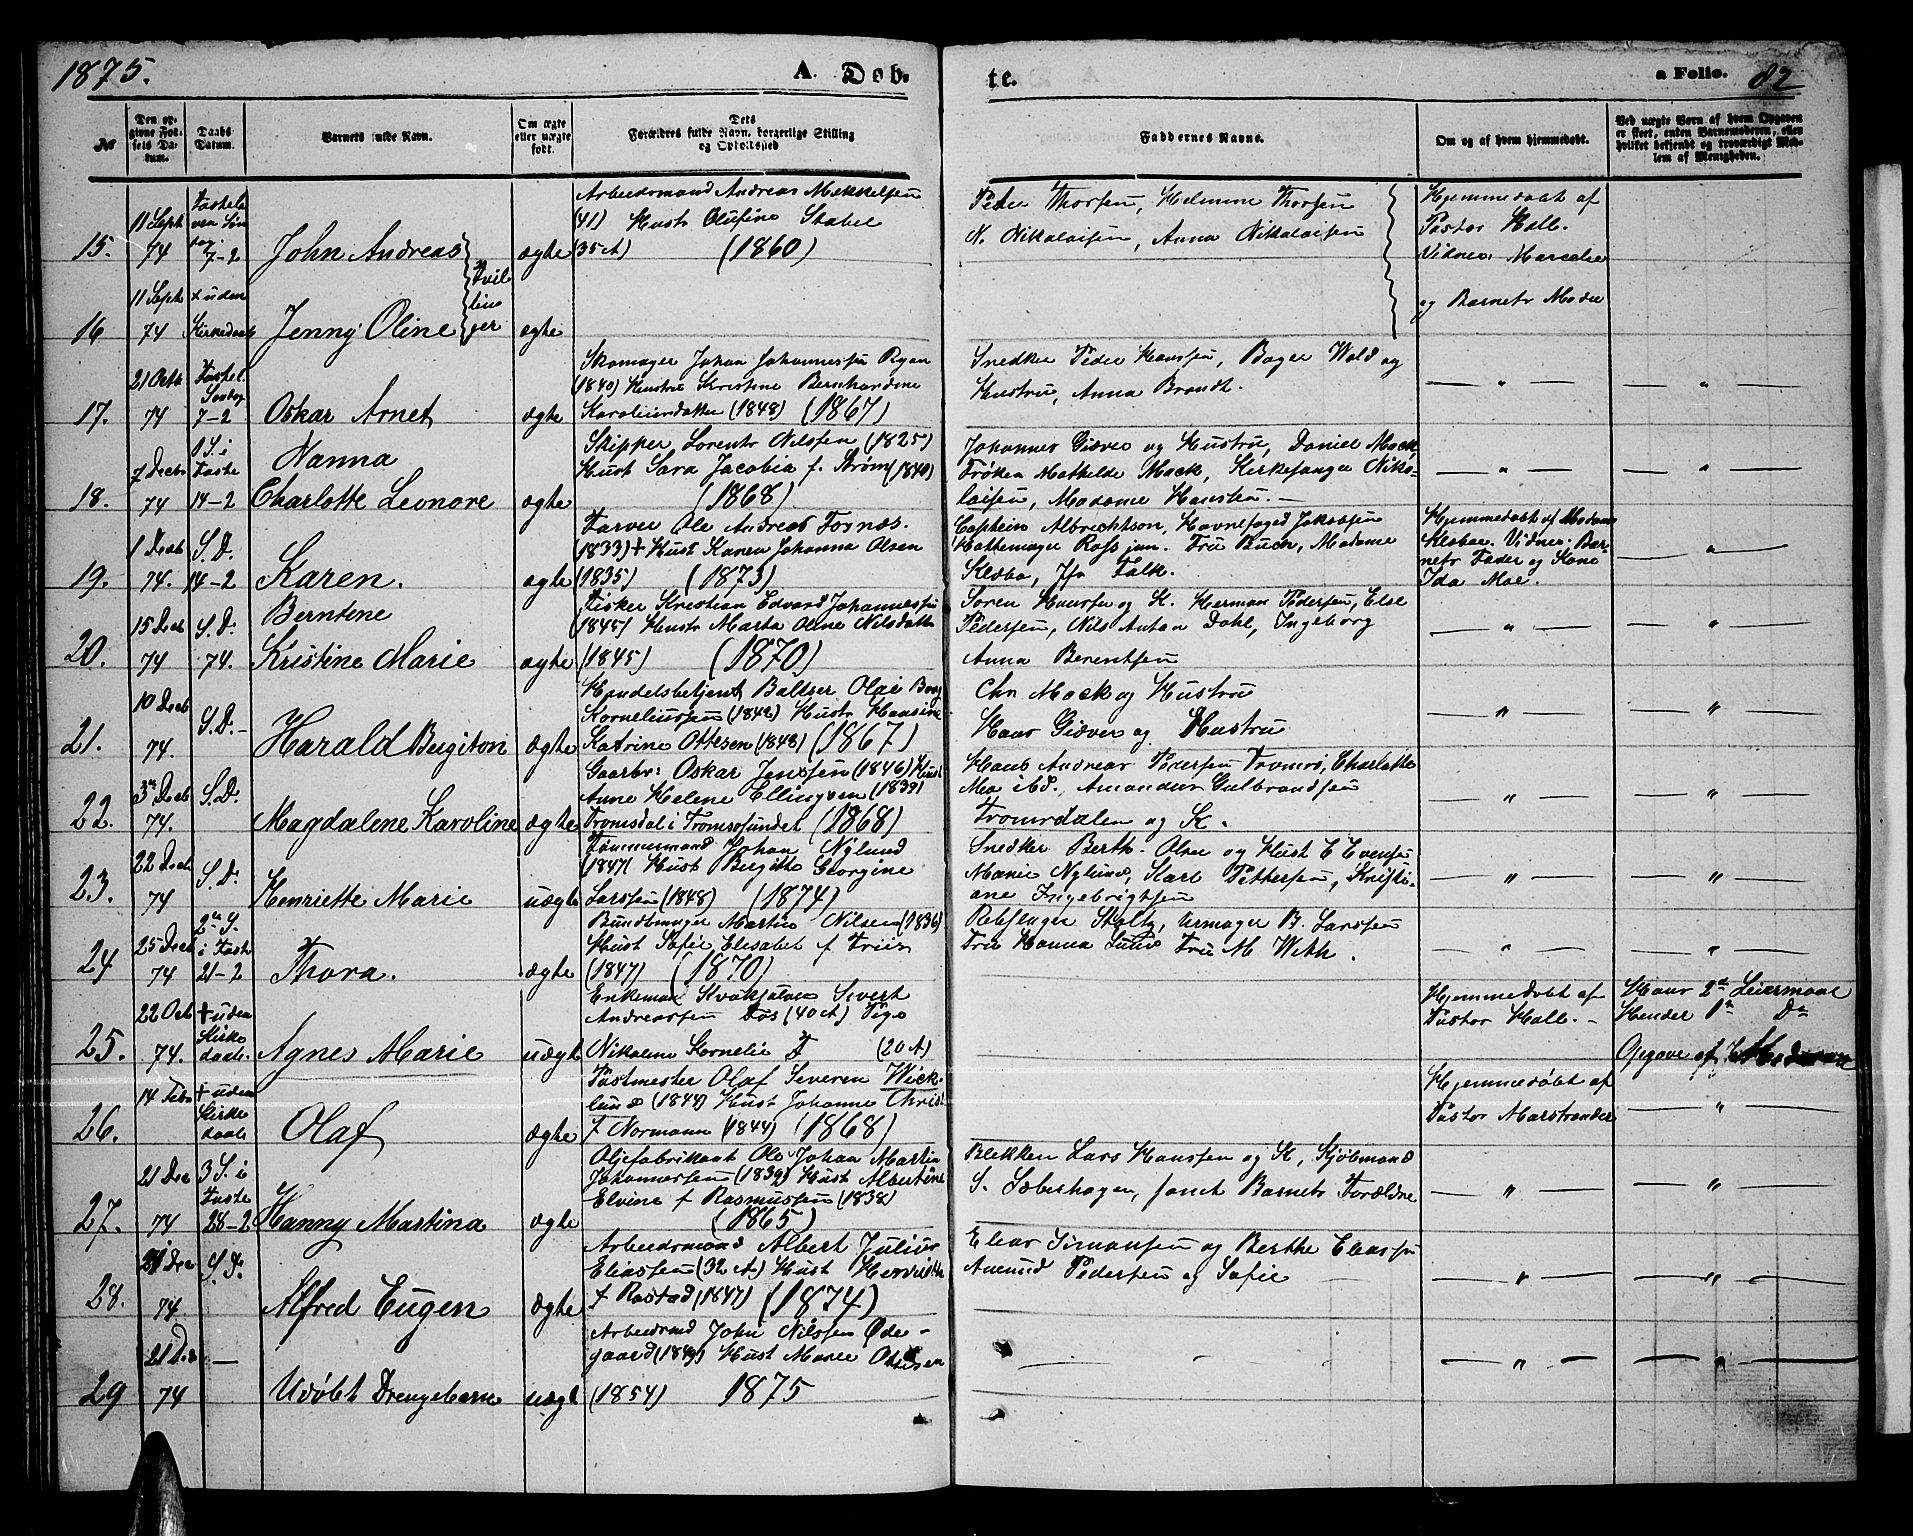 1875.
A. Døb-
te.
a Folio. 82
№
Den opgivne Fødsels Datum.
Daabs Datum.
Barnets fulde Navn.
Om ægte eller uægte født.
Dets Forældres fulde Navn, borgerlige Stilling og Opholdssted
Faddernes Navne.
Om og af hvem hjemmedøbt.
Ved uægte Børn af hvem Opgaven er skeet, enten Barnemoderen, eller hvilket bekjendt og troværdigt Medlem af Menigheden.
15. 11 Sept 74 Fastelavens Søndag. 7-2 John Andreas } Tvillinger ægte
Arbeidsmand Andreas Mekkelsen
(41) Hustr Olufine Stabel
(35 A) (1860)
Peder Thorsen, Helmine Thorsen
N. Nikolaisen, Anna Nikolaisen
Hjemmedøbt af
Pastor Hall.
Vidner: Marcelie
og Barnets Moder
16 11 Sept 74 + uden Kirkedaab Jenny Oline ægte
17. 21 Octb 74 Fastel. Søndag 7-2 Oskar Arnet ægte
Skomager Johan Johannessen Ryan
(1840) Hustru Kristine Bernhardine
Karoliusdatter (1848) (1867)
Snedker Peder Hansen, Bager Wold og
Hustru, Anna Brandt.
— " — — " —
18. 7 Decbr 74 1 S. i Faste 14-2 Nanna
Charlotte Leonore ægte
Skipper Lorents Nilssen (1825)
Hust Sara Jacobia f. Strøm (1840)
(1868)
Johannes Giæver og Hustru, Daniel Mack,
Frøken Mathilde Mack, Kirkesanger Niko-
laisen, Madame Hansen. —
— " — — " —
19. 1 Decb 74. S. D. 14-2 Karen. ægte
Farver Ole Andreas Fornæs.
(1833) + Hust Karen Johanna Olsen
(1835) (1873)
Captein Albrechtson, Havnefoged Jakobsen
Hattemager Ross jun. Fru Buch, Madame
Klæbo, Jfr Falk.
Hjemmedøbt af Madam
Klæboe. Vidner: Bar-
nets Fader og Kone
Ida Moe.
— " —
20. 15 Decb 74 S. D. 74. Berntine
Kristine Marie ægte
Fisker Kristian Edvard Johannessen
(1845) Hustr Marta Oline Nilsdatter
(1845) (1870)
Søren Hansen og K. Herman Pedersen, Else
Pedersen, Nils Anton Dahl, Ingeborg
Anna Berentsen
— " — — " —
21. 10 Decb 74. S. D. - Harald Bugiton ægte
Handelsbetjent Baltser Olai Borg
Korneliussen (1842) Hustr Hansine
Katrine Ottesen (1848) (1867)
Chr Mack og Hustru
Hans Giæver og Hustru
— " — — " —
22. 3die Decb 74. S. D. Magdalene Karoline ægte
Gaarbr: Oskar Jenssen (1846) Hust
Anne Helene Ellingsen (1839)
Tromsdal i Tromsøsundet (1868)
Hans Andreas Pedersen Tromsø, Charlotte
Moe ibd., Amandus Gulbrandsen
Tromsdalen og K.
— " — — " —
23. 22 Decb 74 S. D. Henriette Marie uægte
Tømmermand Johan Nylund
(1847) Hust Birgitte Georgine
Larssen (1848) (1874)
Snedker Berth. Olsen og Hust E Evensen
Marie Nylund, Karl Pettersen, Kristi-
ane Ingebrigtsen
— " — — " —
24 25 Decb 74 2den S. i Faste 21-2 Thora. ægte
Bundtmager Martin Nilsen (1836)
Hust Sofie Elisabet f Friis
(1847) (1870)
Rebslager Stoltz, Urmager B. Larssen
Fru Hanna Lund Fru M With.
— " — — " —
25. 22 Oct 74. + uden Kirkedaab. Agnes Marie uægte
Enkemand Kvaksalver Sivert
Andreassen Los (40 A) Pige
Nikoline Kornelie F (20 A)
Hjemmedøbt af
Pastor Hall. —
Hans 2det Leiermaal
Hendes 1ste Do
Opgave af Moderen
26. 14 Febr + uden Kirkedaab Olaf ægte
Postmester Olaf Severen Wick-
lund (1844) Hust Johanne Christ.
f Normann (1844) (1868)
Hjemmedøbt af
Pastor Marstrander
— " —
27. 21 Dec 74 3 S. i Faste 28-2 Hanny Martina ægte
Oljefabrikant Ole Johan Martin
Johannessen (1839) Hust Albertine
Elvine f Rasmussen (1838)
(1865)
Blekken Lars Hanssen og K, Kjøbmand
S. Sæberhagen, samt Barnets Forældre
— " — — " —
28. 21 Dec 74 S. D. Alfred Eugen ægte
Arbeidsmand Albert Julius
Eliassen (32 A) Hust Henriette
f Rostad (1847) (1874)
Elias Simonsen og Berthe Eliassen
Amund Pedersen og Sofie
— " — — " —
29 21 Dec 74 — Udøbt Drengebarn uægte
Arbeidsmd John Nilssen Øde-
gaard (1849) Hust Maren Ottesen
(1854) 1875
— " — — " —